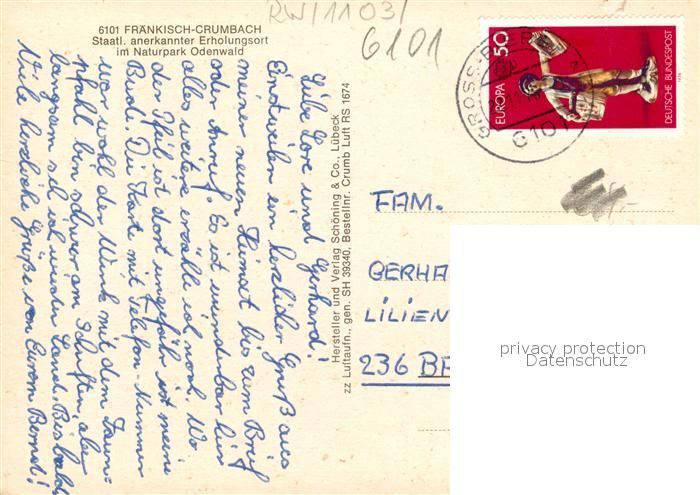 6101 FRÄNKISCH-CRUMBACH
Staatl. anerkannter Erholungsort
im Naturpark Odenwald
RW/1103/
6101
Liebe Lore und Gerhard!
Einstweilen ein herzlicher Gruß aus
meiner neuen Heimat bis zum Brief
oder Anruf. Es ist wunderbar hier
alles weitere erzähle ich noch. Wo
der Pfeil ist dort ungefähr ist meine
Bude. Die Karte mit Telefon-Nummer
war wohl der Wink mit dem Zaun-
pfahl bin schwer am Schuften, aber
langsam seh ich wieder Land. Bis bald
Viele herzliche Grüße von Eurem Bernd!
Hersteller und Verlag Schöning & Co., Lübeck
zz Luftaufn., gen. SH 39340, Bestellnr. Crumb Luft RS 1674
50
EUROPA
DEUTSCHE BUNDESPOST
1976
GROSS-BIEB
6101
FAM.
GERHA
LILIEN
236 B
privacy protection
Datenschutz